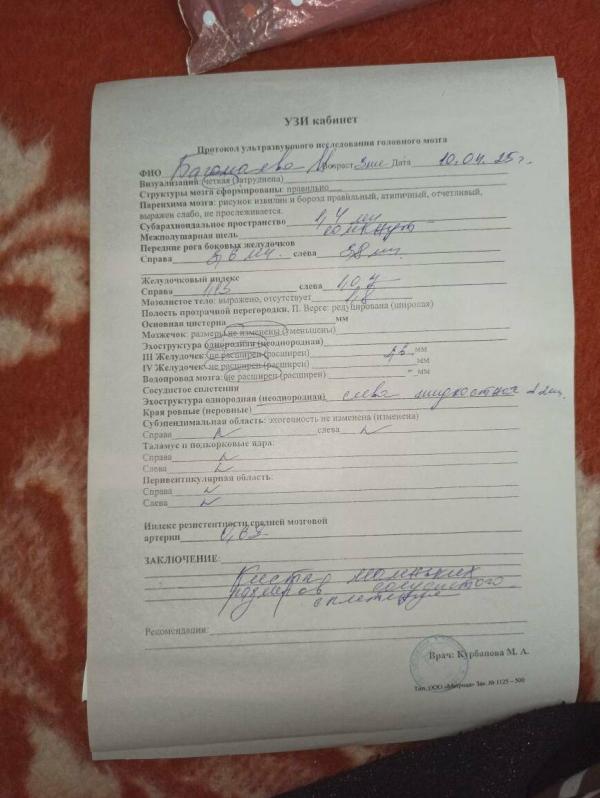 УЗИ кабинет
Протокол ультразвукового исследования головного мозга
ФИО Возраст Дата 10.04.25г.
Визуализация (четкая (затруднена)
Структуры мозга сформированы: правильно
Паренхима мозга: рисунок извилин и борозд правильный, атипичный, отчетливый,
выражен слабо, не прослеживается.
Субарахноидальное пространство 1,4 мм
Межполушарная щель сомкнут
Передние рога боковых желудочков
Справа слева 3,8 мм.
Желудочковый индекс
Справа слева
Мозолистое тело: выражено, отсутствует 1,8
Полость прозрачной перегородки, П. Верге: редуцирована (широкая)
Основная цистерна мм
Мозжечок: размеры не изменены (уменьшены)
Эхоструктура однородная (неоднородная)
III Желудочек: не расширен (расширен) мм
IV Желудочек: не расширен (расширен) мм
Водопровод мозга: не расширен (расширен) " мм
Сосудистое сплетения
Эхоструктура однородная (неоднородная) слева жидкостное
Края ровные (неровные)
Субэпендимальная область: эхогенность не изменена (изменена)
Справа слева
Таламус п подкорковые ядра:
Справа
Слева
Перивентикулярная область:
Справа
Слева
Индекс резистентности средней мозговой
артерии
ЗАКЛЮЧЕНИЕ:
Киста маленьких
размеров сосудистого
сплетения
Рекомендации:
Врач: Курбанова М. А.
Тип. ООО Зак. № 1125 – 500